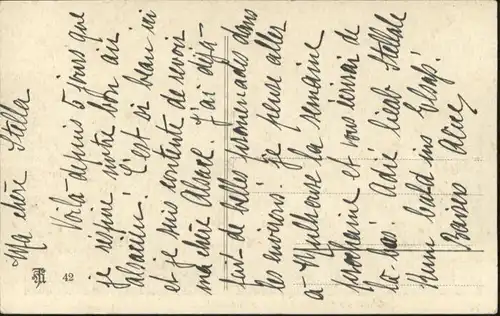 Ma chère Stella
Voilà depuis 5 jours que
je respire notre bon air
alsacien! C'est si beau ici
et je suis contente de revoir
ma chère Alsace. J'ai déjà
fait de belles promenades dans
les environs. Je pense aller
à Mulhouse la semaine
prochaine et vous écrirai de
là-bas. Adié lieb Stellale
Kumm bald ins Elsass!
Baisers Alice
42